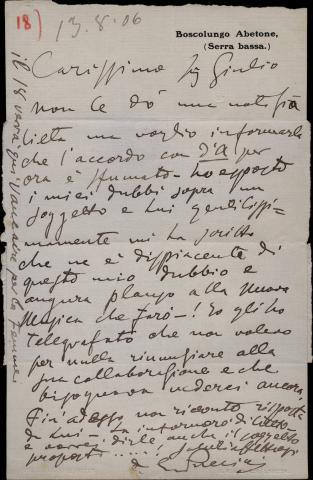 18)
13.8.06
Boscolungo Abetone,
(Serra bassa.)
Carissimo Sig Giulio
non le dò una notizia
lieta ma voglio informarla
che l'accordo con d'A per
ora è sfumato - ho esposto
i miei dubbi sopra un
soggetto e lui gentilissi=
mamente mi ha scritto
che ne è dispiacente di
questo mio dubbio e
augura plauso alla nuova
Musica che farò - ! Io gli ho
telegrafato che non volevo
per nulla rinunziare alla
sua collaborazione e che
bisognava vederci ancora.
Fin'adesso non ricevuto risposta
da lui - La informerò di tutto
e vorrei dirle anche il soggetto
proposto ......, saluti affettuosi
da GPuccini
il 18 verrà qui Vaucaire per la Femme